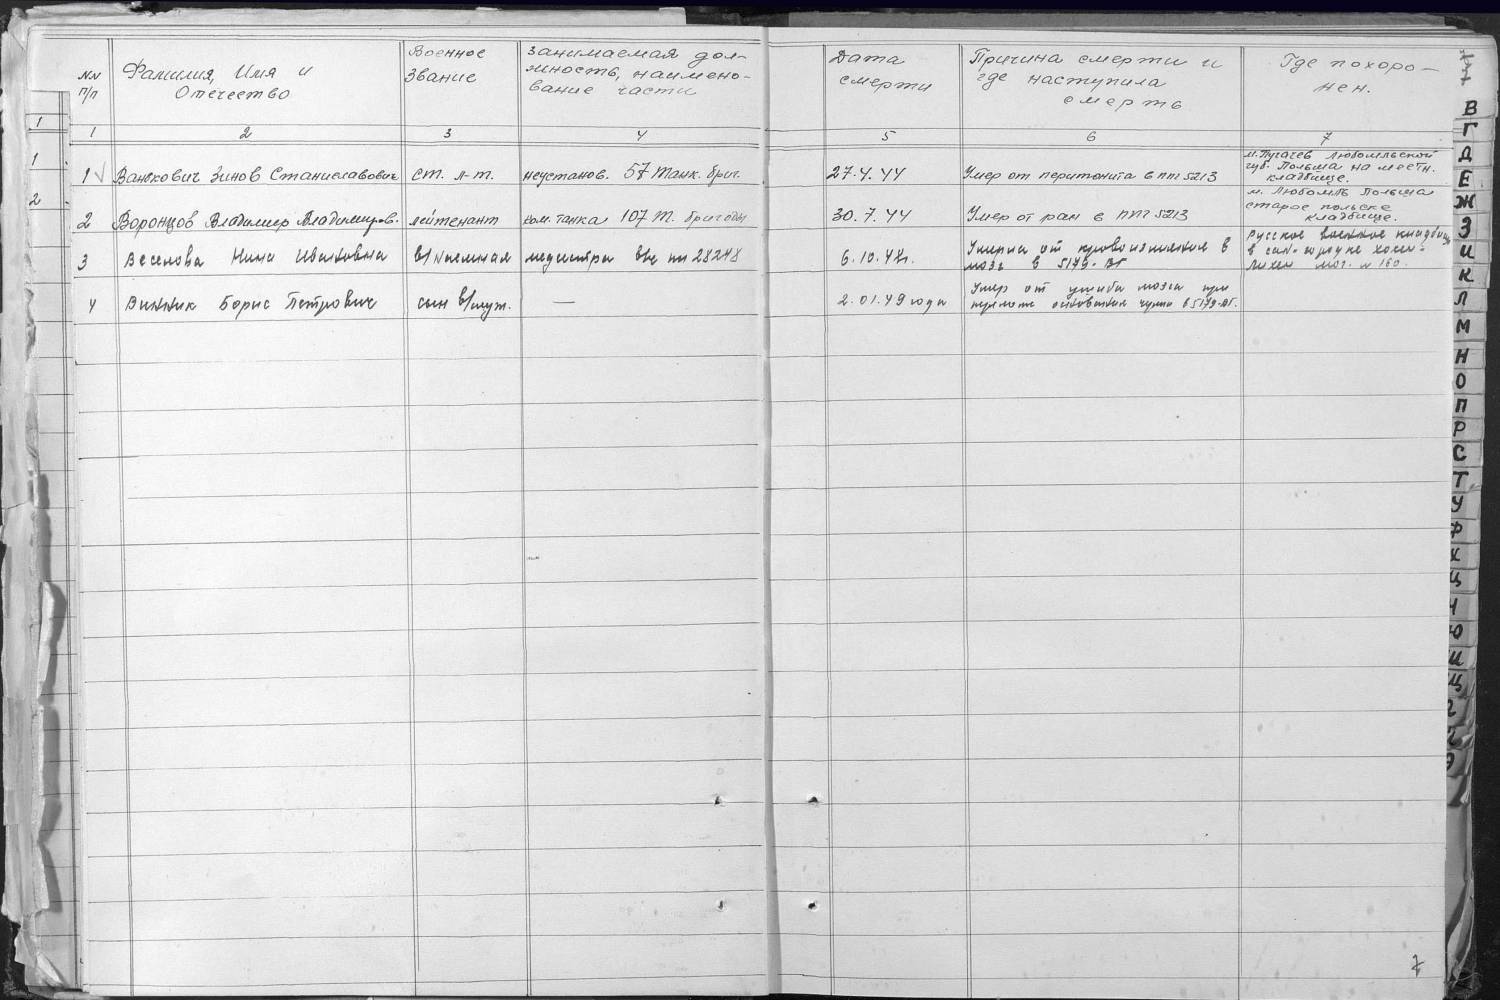 NN п/п
Фамилия, Имя и
Отечество
Военное
Звание
Занимаемая дол-
жность, наимено-
вание части
Дата
смерти
Причина смерти и
где наступила
смерть
Где похоро-
нен.
1 2 3 4 5 6 7
1 Ванькович Зинов Станиславович ст. л-т. неустанов. 57 Танк. бриг. 27.4.44 Умер от перитонита в ппг 5213
м. Пугачев Любомльской
губ. Польша на местн.
кладбище.
2 Воронцов Владимир Владимиров. лейтенант ком. танка 107 т. бригады 30.7.44 Умер от ран в ППГ 5213
м. Любомль Польша
старое польске
кладбище.
3 Веселова Нина Ивановна в/наемная медсестра пп 28248 6.10.48г.
Умерла от кровоизлияния в
мозг в 5179-ЭГ
Русское военное кладбище
в мог. N 160.
4 Винник Борис Петрович сын в/служ. — 2.01.49 года
Умер от ушиба мозга при
основания в 5179-ЭГ.
1
1
2
В
Г
Д
Е
Ж
З
И
К
Л
М
Н
О
П
Р
С
Т
У
Ф
Х
Ц
Ч
Ю
Ш
Щ
7